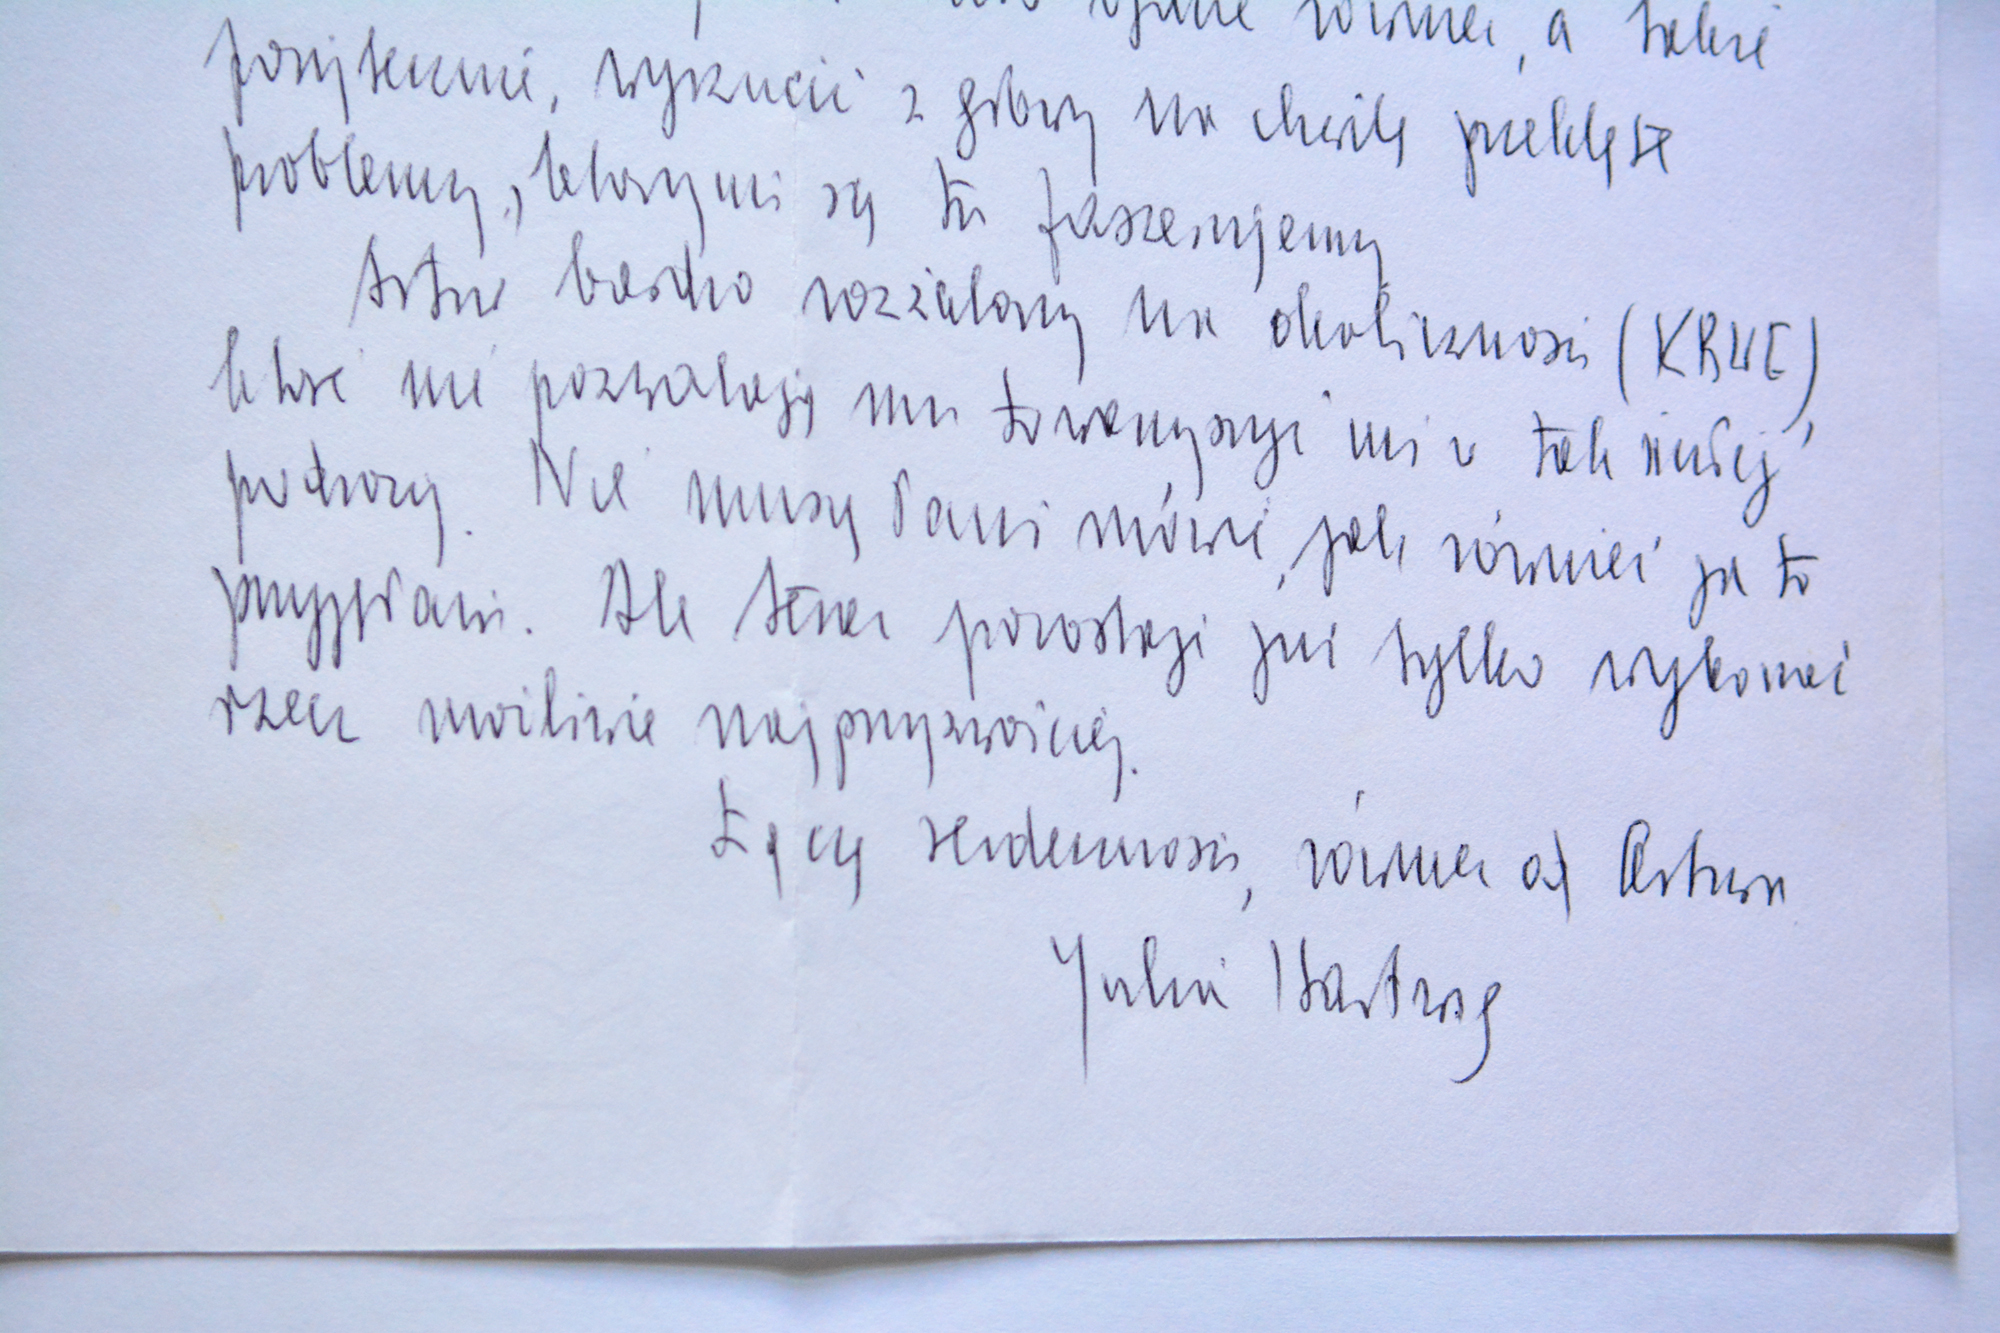 również, a także
pożytecznie, wyrzucić z głowy na chwilę przeklęte
problemy, którymi są tu faszerujemy
Artur bardzo rozżalony na okoliczności (KRWE)
które nie pozwalają mu towarzyszyć mi w tak miłej
podróży. Nie muszę Pani mówić, jak również ja to
Ale teraz pozostaje już tylko wykonać
rzecz możliwie najprzyzwoiciej.
Łączę serdeczności, również od Artura
Julia Hartwig